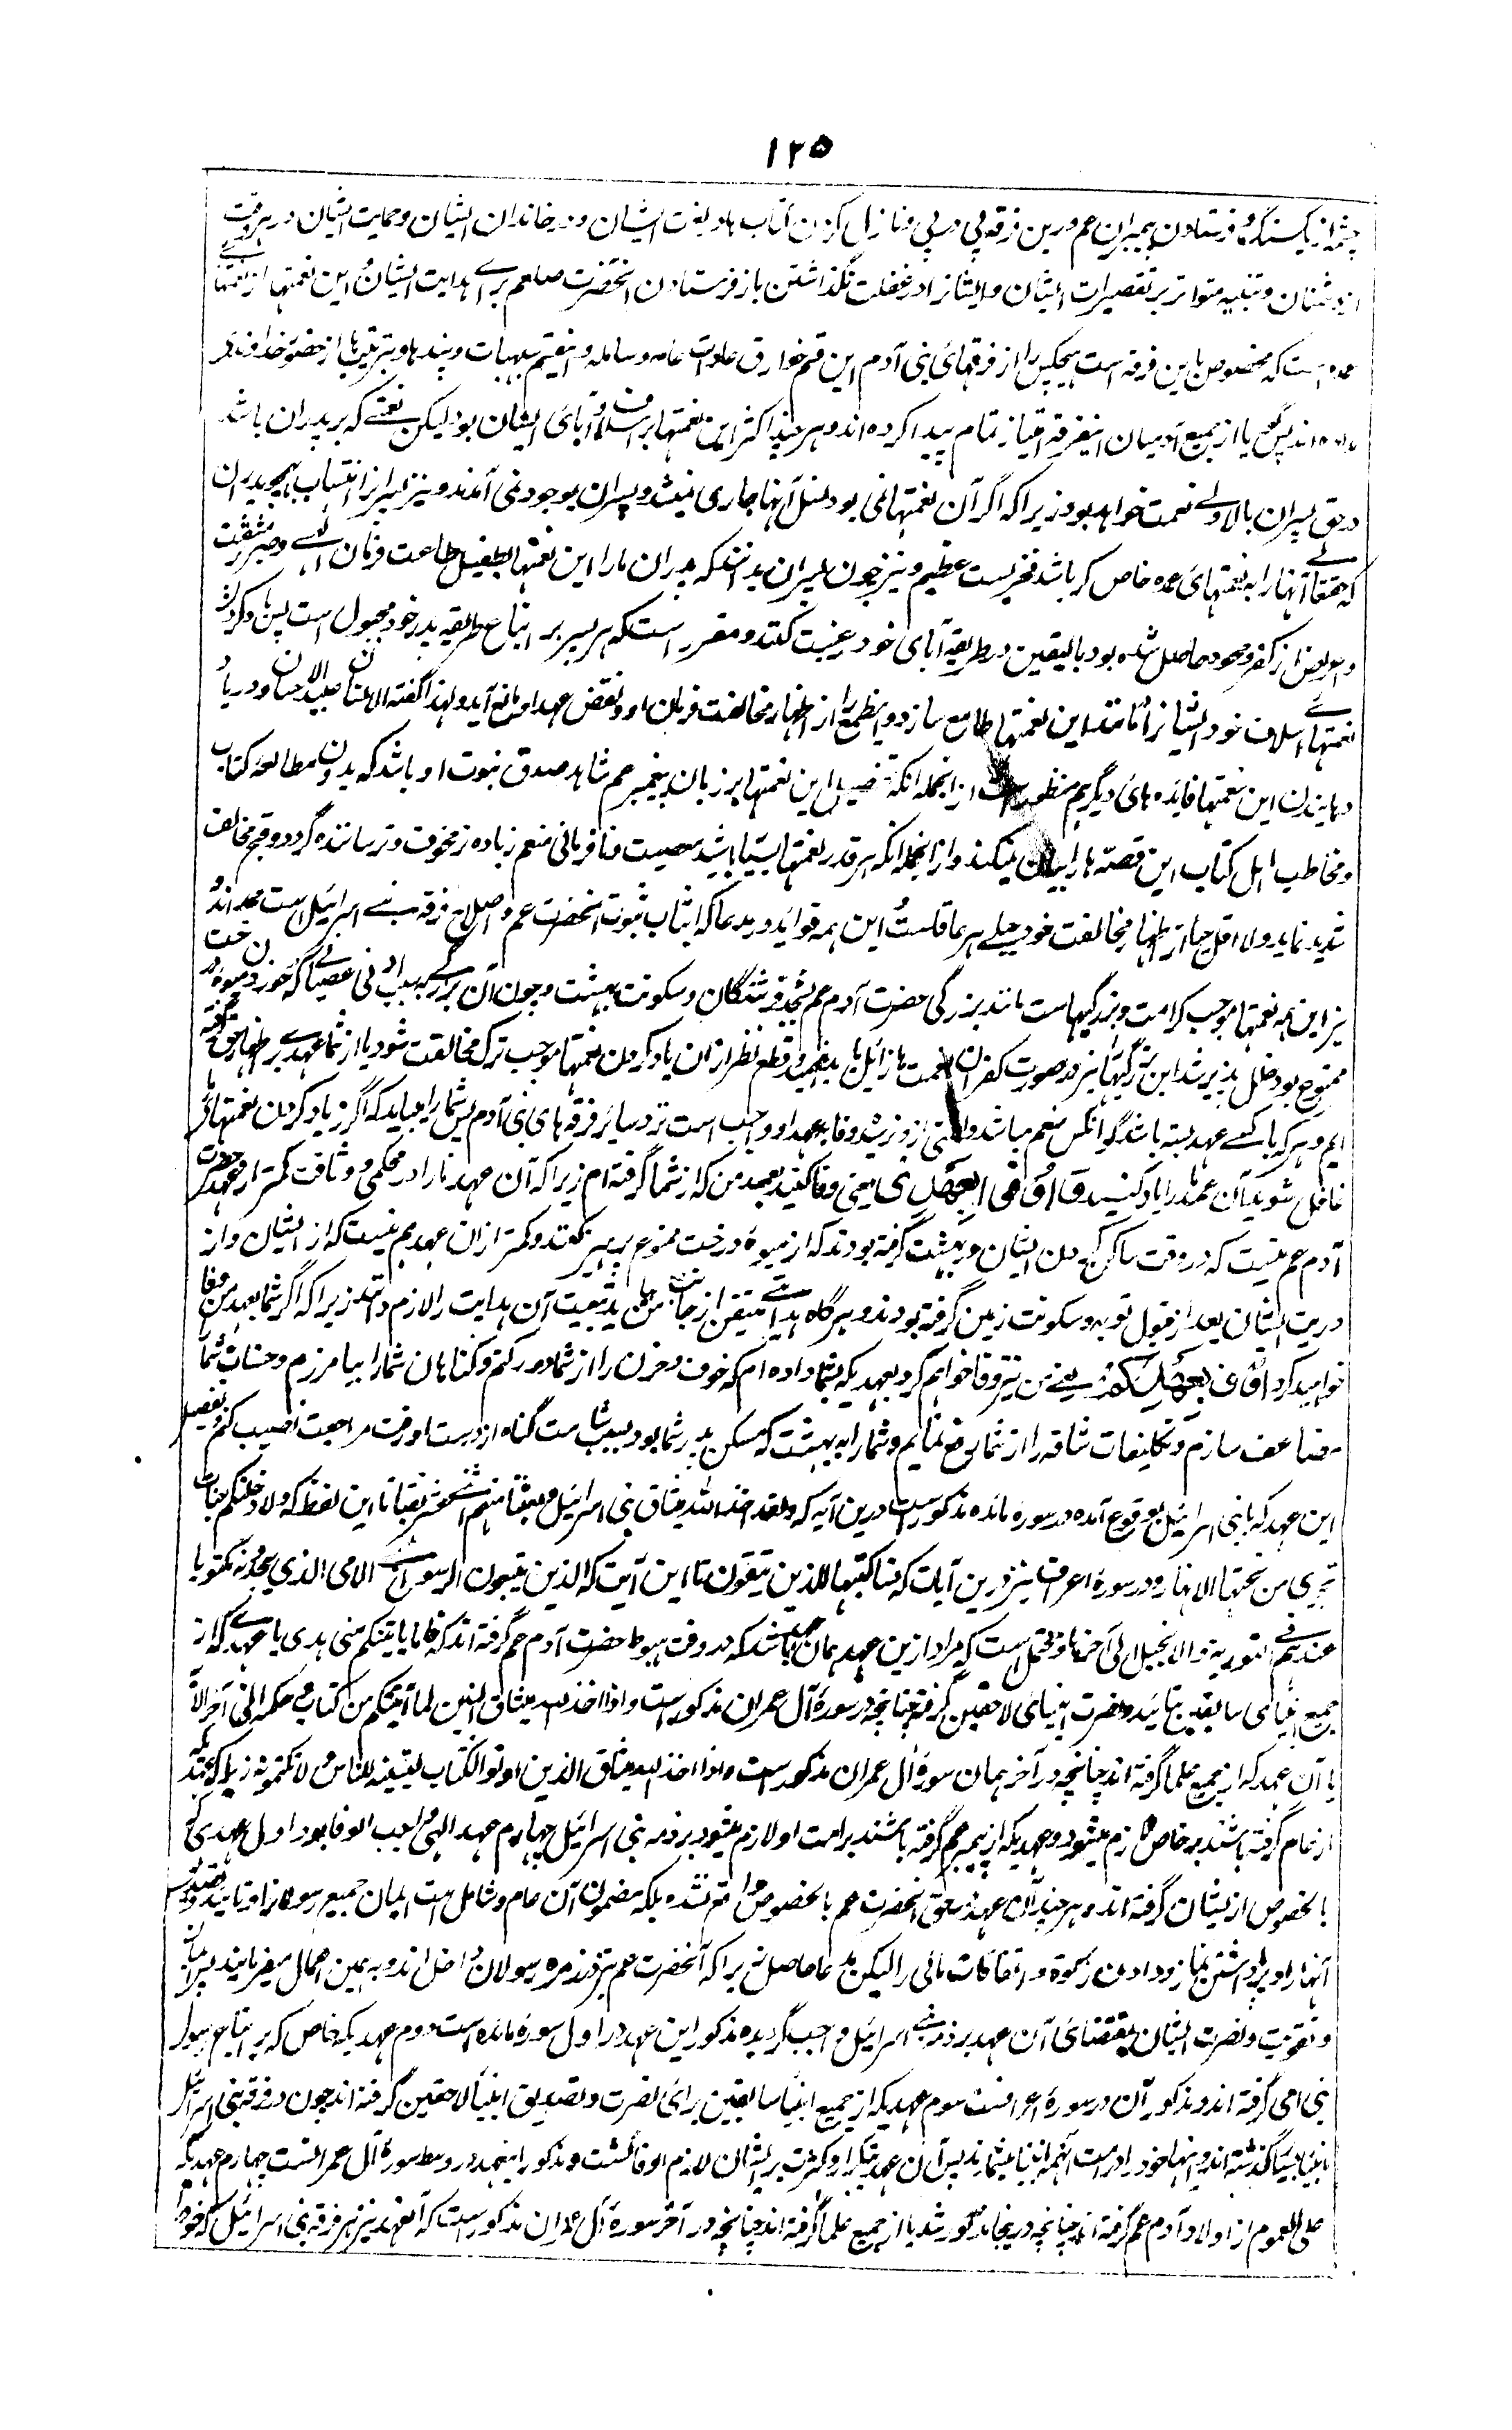 ۱۲۵
چشمه از یک سنگ و فرستادن پیمبران عم درین فرقه پی در پی و نازل کردن کتاب ها در لغت ایشان و در خاندان ایشان و حمایت ایشان در هر وقت
از دشمنان و تنبیه متواتر بر تقصیرات ایشان و ایشانرا در غفلت نگذاشتن باز فرستادن آنحضرت صلعم برای هدایت ایشان و این نعمتها از نعمتهای
عمده است که مخصوص باین فرقه است هیچکس را از فرقهای بنی آدم این قسم خوارق عادات عامه و شامله و اینقسم تنبیهات و پندها و از حضور خداوندی
نداده اند پس گویا از جمیع آدمیان اینفرقه امتیاز تمام پیدا کرده اند و هر چند اکثر این نعمتها بر اسلاف و آبای ایشان بود لیکن نعمتی که بر پدران باشد
در حق پسران بالاولی نعمت خواهد بود زیرا که اگر آن نعمتها نمی بود نسل آنها جاری نمیشد و پسران بوجود نمی آمدند و نیز پسران را انتساب بهمچو پدران
که حقتعالی آنها را به نعمتهای عمده خاص کرده باشد فخریست عظیم و نیز چون پسران بدانند که پدران ما را این نعمتها بطفیل طاعت فرمان الهی و صبر بر مشقت
و اعراض از کفر و جحود حاصل شده بود بالیقین در طریقه آبای خود رغبت کنند و مقرر است که هر پسر بر اتباع طریقه پدر خود مجبول است پس یاد کردن
نعمتهای اسلاف خود ایشانرا مانند این نعمتها طامع سازد و این طمع را از اظهار مخالفت فرمان او و نقض عهد او مانع آید و لهذا گفته اند الانسان عبید الاحسان و در یاد
دهانیدن این نعمتها فایده های دیگر هم منظور است از انجمله آنکه تفصیل این نعمتها بر زبان پیغمبر عم شاهد صدق نبوت او باشد که بدون مطالعه کتاب
و مخاطب اهل کتاب این قصه ها را بیان میکند و از انجمله آنکه هر قدر نعمتها بسیار باشد معصیت و نافرمانی منعم زیاده تر مخوف و ترساننده گردد و قبح مخالفت
شدید نماید و لا اقل حیا از اظهار مخالفت خود جبلی هر عاقلست و این همه فواید در مدعا که اثبات نبوت آنحضرت عم و اصلاح فرقه بنی اسرائیل است ممد اند و
نیز این همه نعمتها موجب کرامت و بزرگیهاست مانند بزرگی حضرت آدم عم بسجده فرشتگان و سکونت بهشت و چون آن بزرگی به سبب ادنی عصیانی که خوردن میوه درخت
ممنوع بود خلل پذیر شد این بزرگیها نیز در صورت کفران نعمت ها زائل باید فهمید و قطع نظر از ان یاد کردن نعمتها موجب ترک مخالفت شود یا از شما عهدی بر اظهار حق گرفته
ایم و هر که با کسی عهد بسته باشد گو آنکس منعم نباشد و از وی نترسد وفا بعهد او واجب است نزد سائر فرقه های بنی آدم پس شما را میباید که اگر از یاد کردن نعمتهای ما
غافل شوید آن عهد ما را یاد کنید وَ اَوْفُوْا بِعَهْدِیْ یعنی وفا کنید بعهد من که از شما گرفته ام زیرا که آن عهد نازل در محکمی و وثاقت کمتر از عهد حضرت
آدم عم نیست که در وقت ساکن کردن ایشان در بهشت گرفته بودند که از میوه درخت ممنوع پرهیز کنند و کمتر از ان عهد هم نیست که از ایشان و از
ذریت ایشان بعد از قبول توبه و سکونت زمین گرفته بودند و هرگاه هدایتی متیقن از جانب من بیاید تبعیت آن هدایت را لازم دانند زیرا که اگر شما بعهد من وفا
خواهید کرد اُوْفِ بِعَهْدِکُمْ یعنی من نیز وفا خواهم کرد بعهدیکه بشما داده ام که خوف و حزن را از شما دور کنم و گناهان شما را بیامرزم و حسنات شما
مضاعف سازم و تکلیفات شاقه را از شما رفع نمایم و شما را به بهشت که مسکن پدر شما بود بسبب شامت گناه از دست او رفت مراجعت نصیب کنم و تفصیل
این عهد که با بنی اسرائیل بوقوع آمده در سوره مائده مذکور است درین آیه که و لقد اخذ الله میثاق بنی اسرائیل و بعثنا منهم اثنی عشر نقیبا تا این لفظ که ولادخلنکم جنات
تجری من تحتها الانهار و در سورهٔ اعراف نیز درین آیات که فساکتبها للذین یتقون تا این آیت که الذین یتبعون الرسول النبی الامی الذی یجدونه مکتوبا
عندهم فی التوریة و الانجیل الی آخرها و محتمل است که مراد ازین عهد همان عهد باشد که در وقت هبوط حضرت آدم عم گرفته اند که فاما یاتینکم منی هدی یا عهدی که از
جمیع انبیای سابقین بتائید و نصرت انبیای لاحقین گرفته چنانچه در سورهٔ آل عمران مذکور است و اذ اخذ الله میثاق النبیین لما آتیتکم من کتاب و حکمة الی آخر الآیة
یا آن عهد که از جمیع علما گرفته اند چنانچه در آخر همان سورهٔ آل عمران مذکور است و اذ اخذ الله میثاق الذین اوتوا الکتاب لتبیننه للناس و لا تکتمونه زیرا که عهدیکه
از عام گرفته باشند بر خاص لازم میشود و عهدیکه از پیمبر عم گرفته باشند بر امت او لازم میشود بر ذمه بنی اسرائیل چهارم عهد الهی واجب الوفا بود اول عهدی که
بالخصوص از ایشان گرفته اند و هر چند در آن عهد متعلق آنحضرت عم بالخصوص واقع نشده بلکه مضمون آن عام و شامل است ایمان جمیع رسولان را و تائید و
آنها را و برپا داشتن نماز و دادن زکوة و انفاقات مالی را لیکن مدعا حاصل زیرا که آنحضرت عم نیز در زمره رسولان داخل اند و به همین اجمال میفرمایند پس ایمان
و تقویت و نصرت ایشان بمقتضای آن عهد بر ذمه بنی اسرائیل واجب گردیده مذکور این عهد در اول سوره مائده است دوم عهدیکه خاص که بر اتباع رسول
نبی امی گرفته اند و مذکور آن در سورهٔ اعراف است سوم عهدیکه از جمیع انبیا سابقین برای نصرت و تصدیق انبیا لاحقین گرفته اند چون در فرقه بنی اسرائیل
انبیا بسیار گذشته اند و اینها خود را در امت آنهمه انبیا میشمارند پس آن عهد بتکرار و کثرت بر ایشان لازم الوفا گشت و مذکور اینعهد در وسط سورهٔ آل عمرانست چهارم عهدیکه
علی العموم از اولاد آدم عم گرفته اند چنانچه در اینجا مذکور شد یا از جمیع علما گرفته اند چنانچه در آخر سورهٔ آل عمران مذکور است که آنعهد نیز بر فرقه بنی اسرائیل که خود را